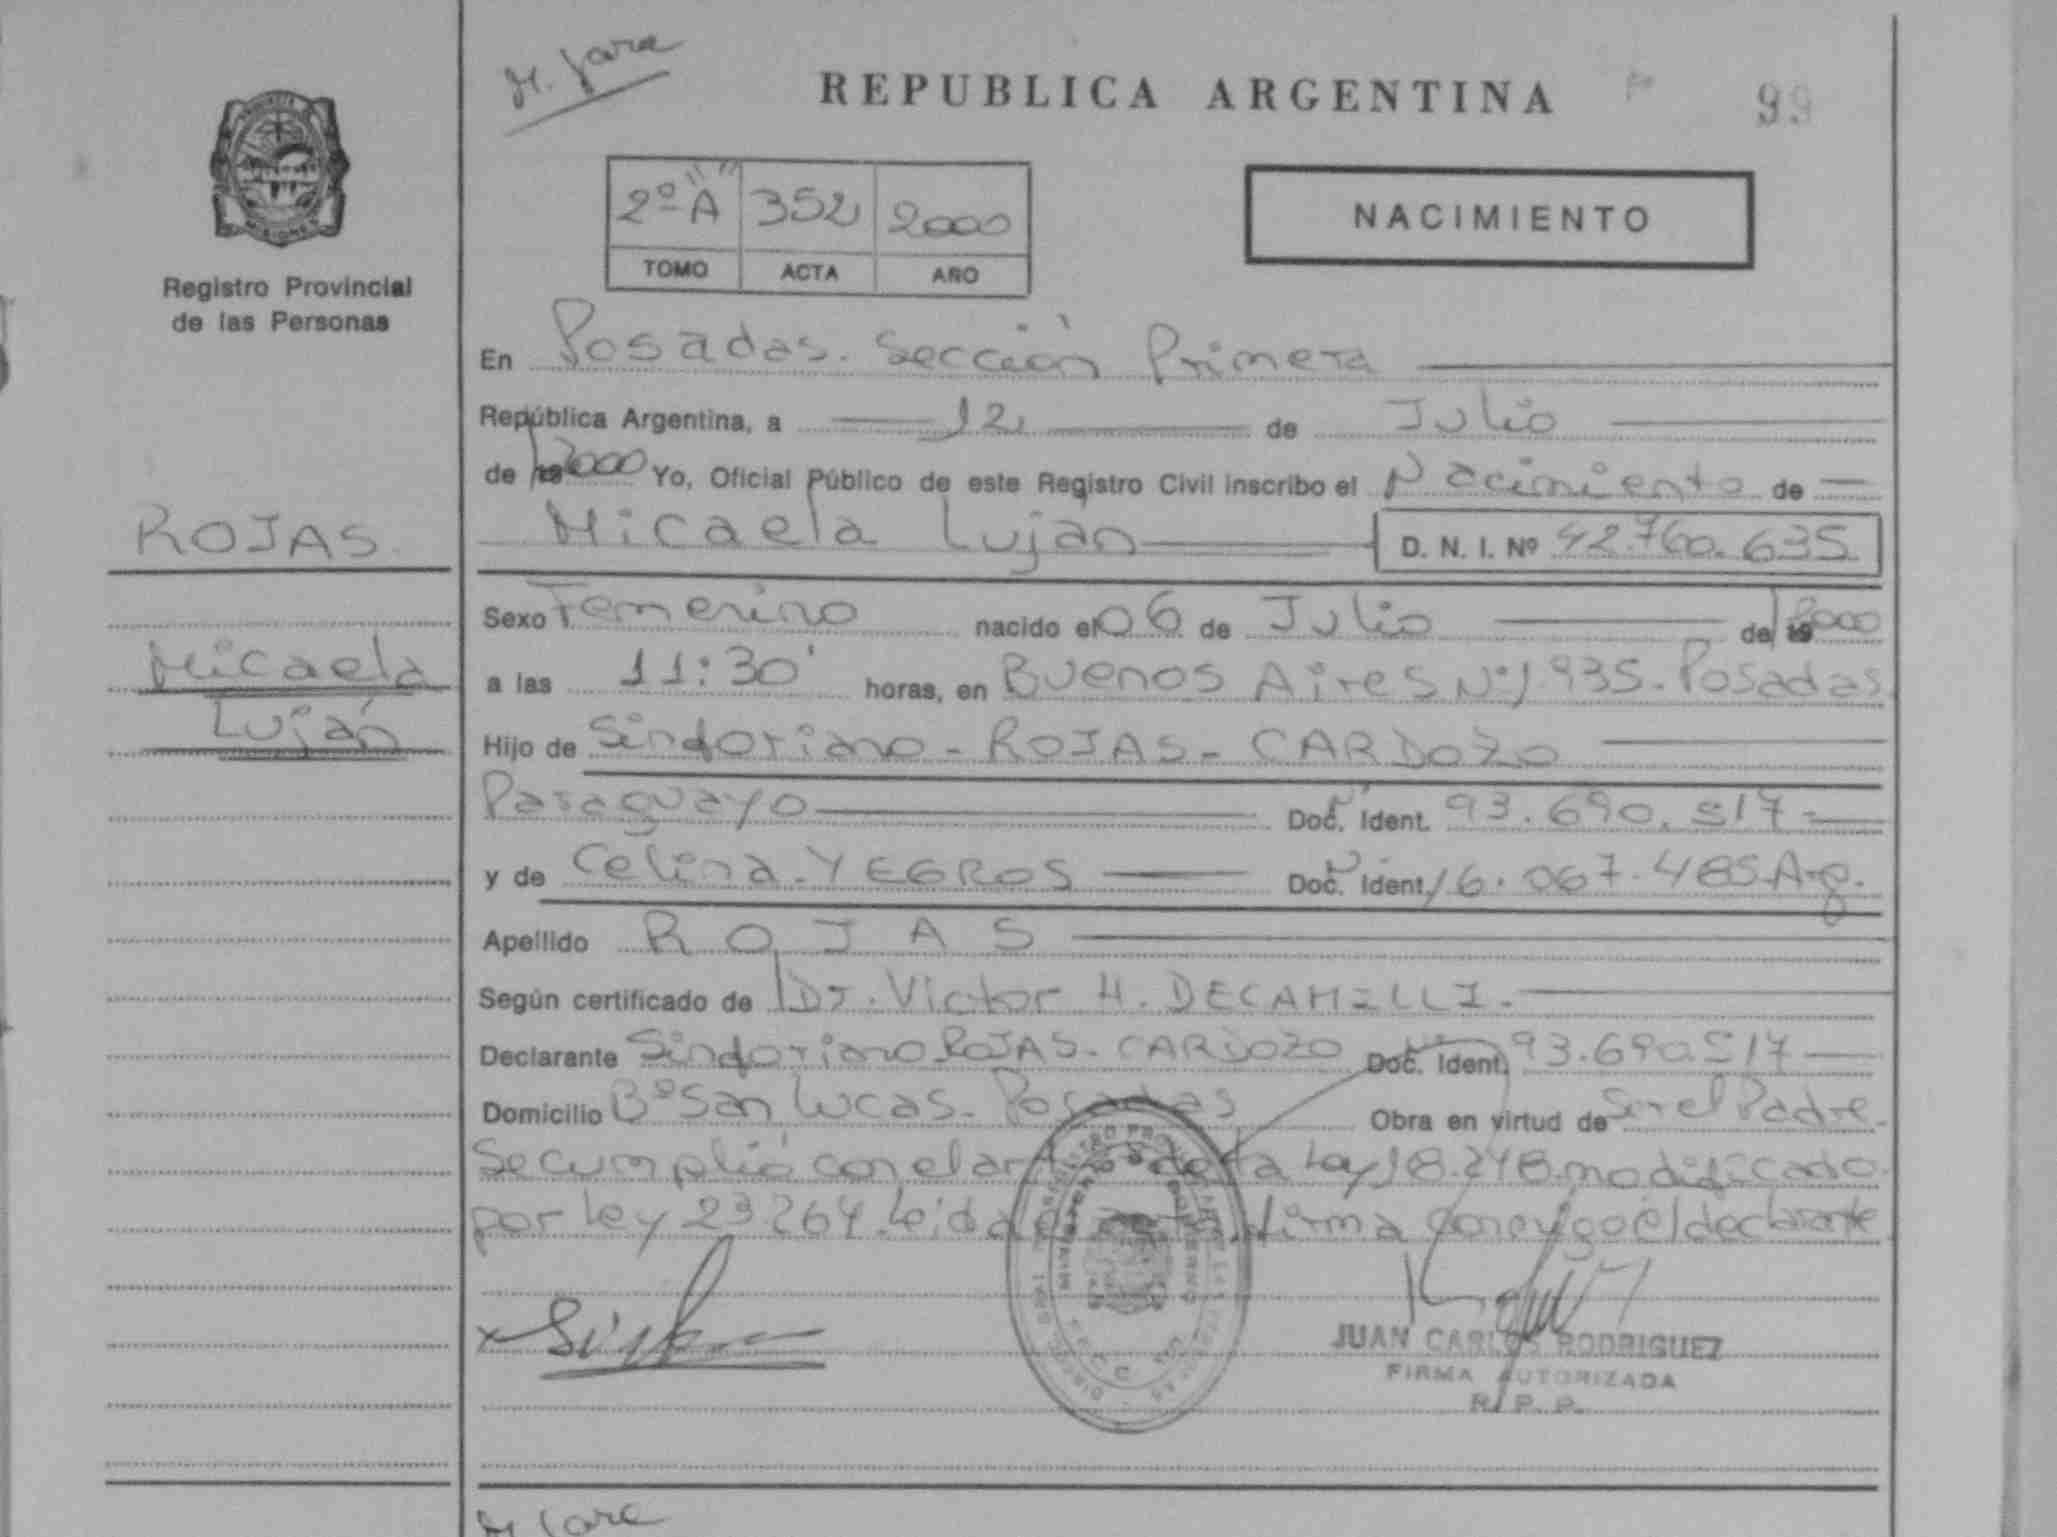 M. Jara
REPUBLICA ARGENTINA
99
MISIONES
Registro Provincial
de las Personas
2º "A" 352 2000
TOMO ACTA AÑO
NACIMIENTO
En Posadas. Sección Primera
República Argentina, a 12 de Julio
de 19 2000 Yo, Oficial Público de este Registro Civil inscribo el Nacimiento de
Micaela Luján D. N. I. Nº 42.760.635
ROJAS
Micaela
Luján
Sexo Femenino nacido el 06 de Julio de 19 2000
a las 11:30' horas, en Buenos Aires Nº 1.935. Posadas
Hijo de Sinforiano - ROJAS - CARDOZO
Paraguayo Doc. Ident. 93.690.517
y de Celina YEGROS Doc. Ident. 16.067.485 Arg.
Apellido ROJAS
Según certificado de Dr. Victor H. DECAMILLI.
Declarante Sinforiano ROJAS - CARDOZO Doc. Ident. 93.690.517
Domicilio Bº San Lucas - Posadas Obra en virtud de Ser el Padre.
Se cumplió con el art de la Ley 18.248 modificado
por Ley 23.264. Leida el acta, firma conmigo el declarante.
JUAN CARLOS RODRIGUEZ
FIRMA AUTORIZADA
R. P. P.
M. Jara